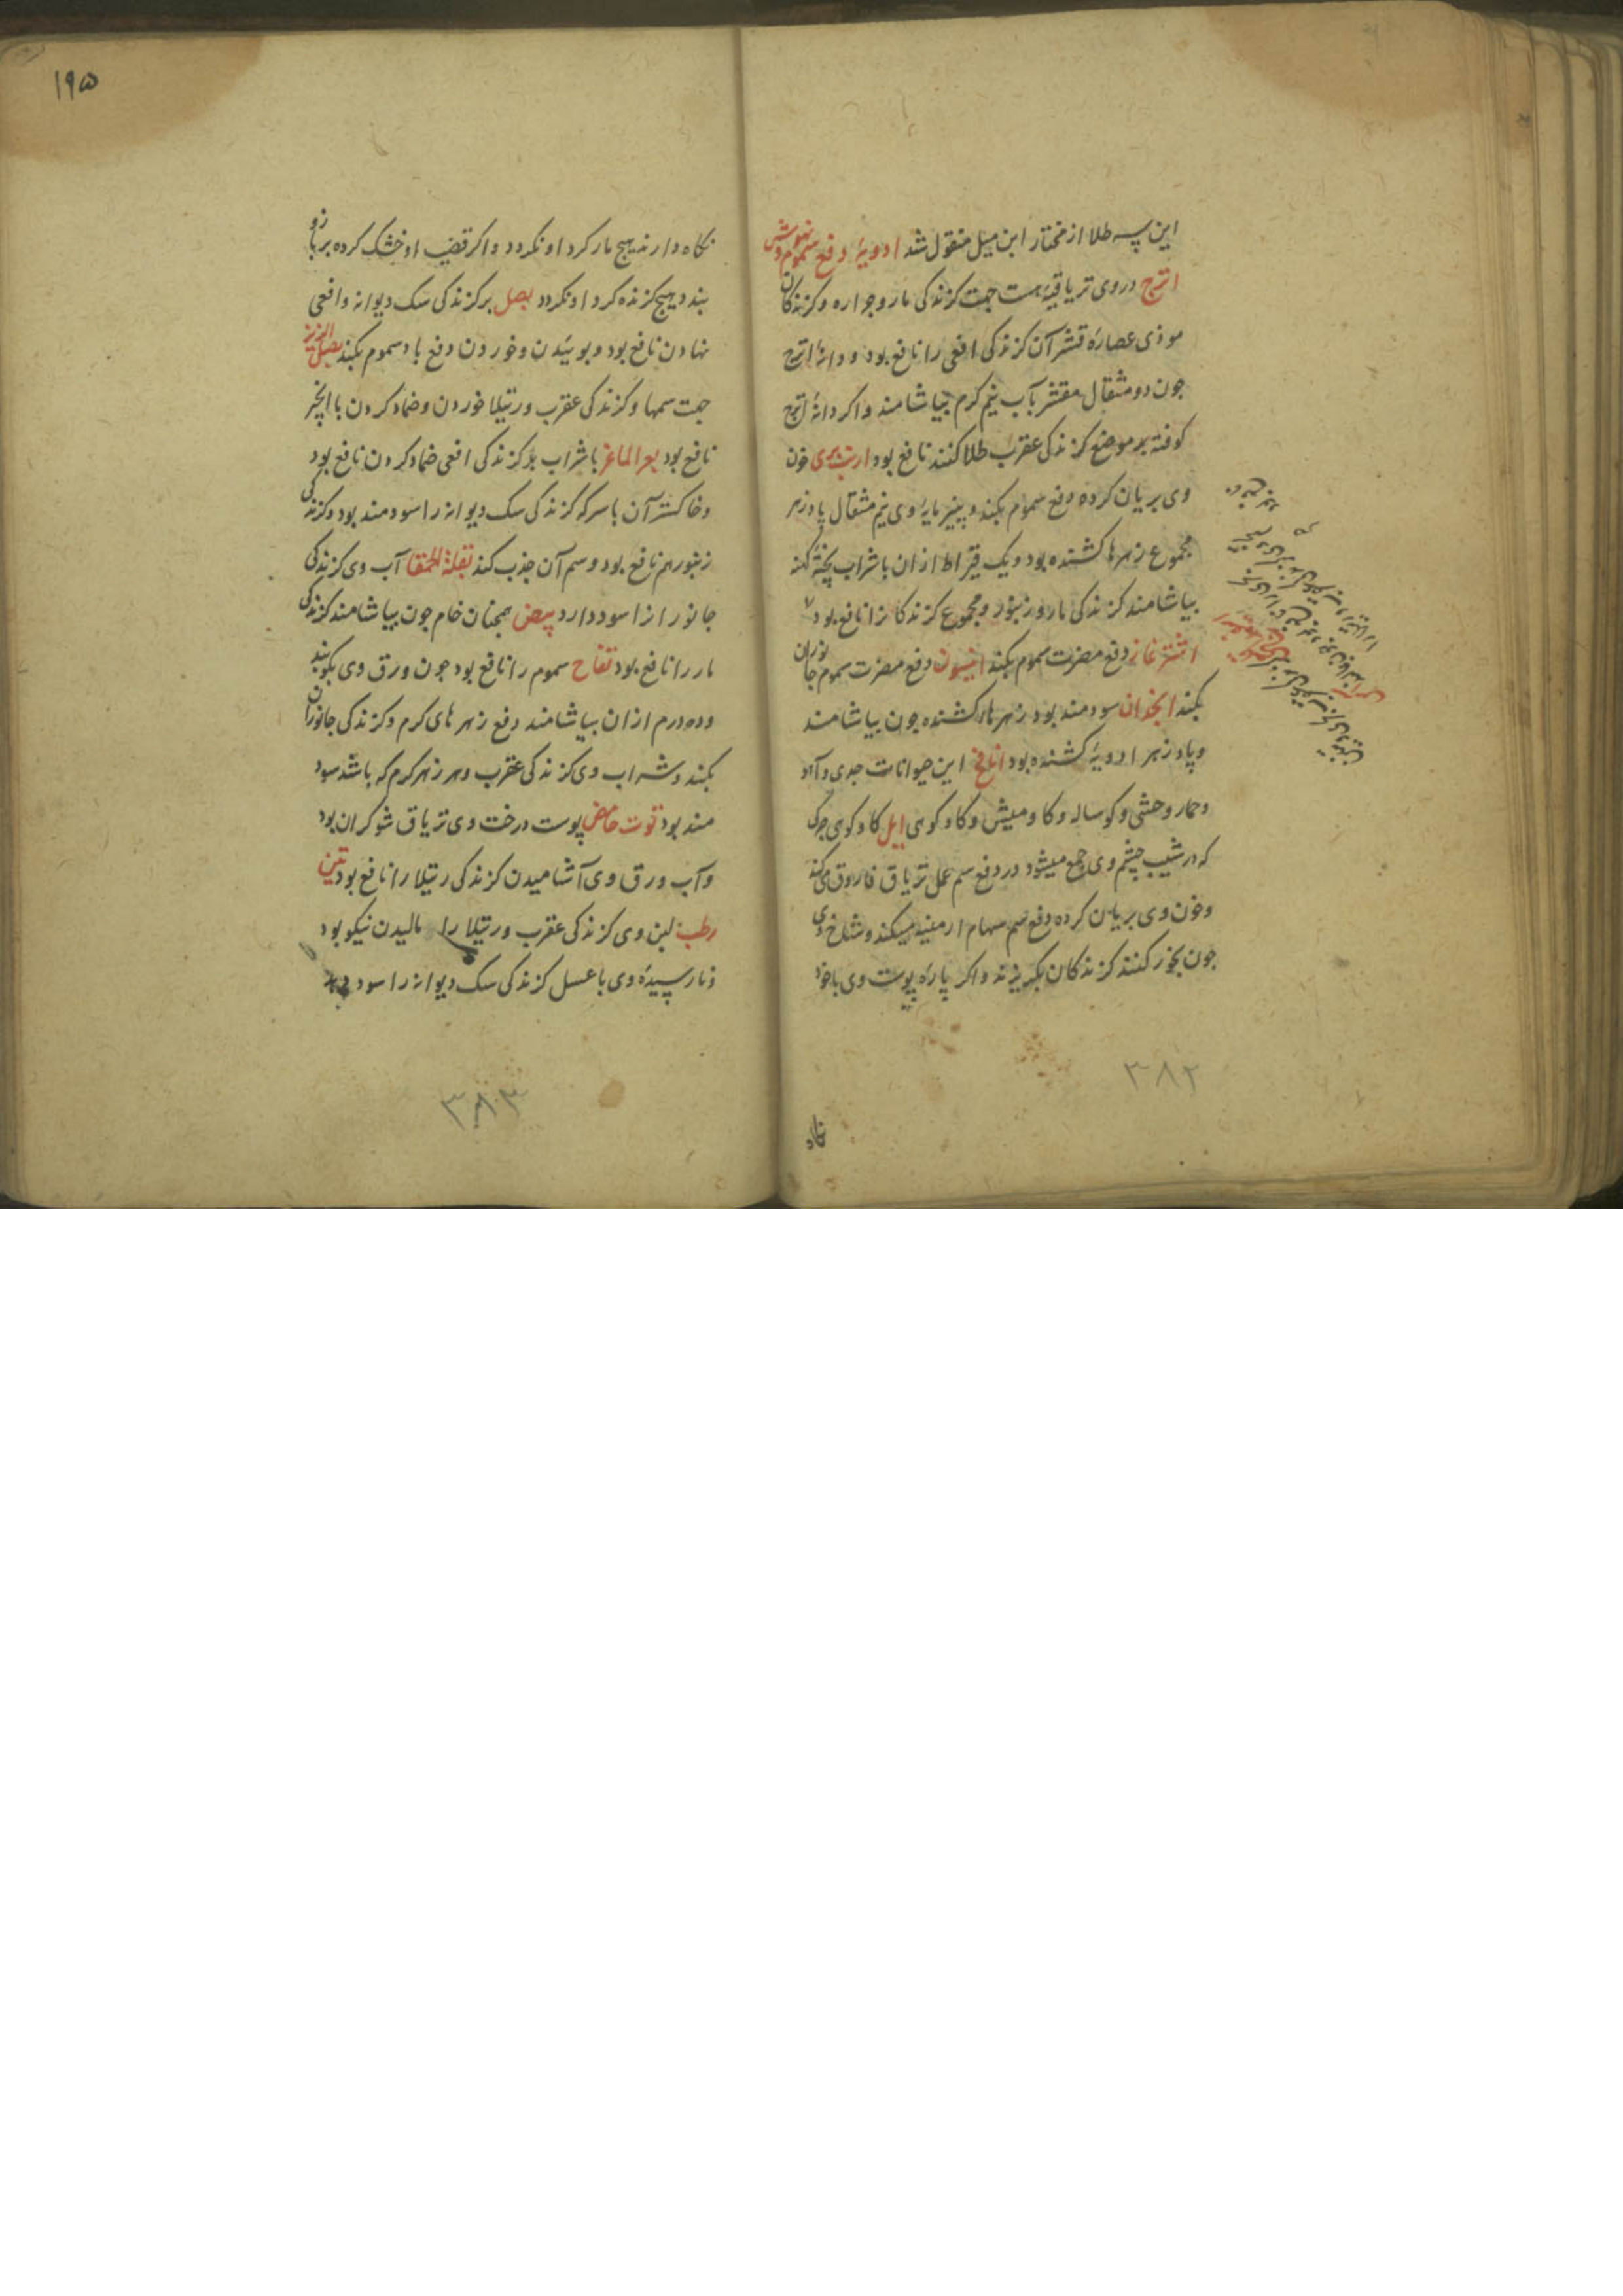 این سه طلا از مختار ابن میل منقول شد ادویهٔ دفع سموم
اترج در وی تریاقیهٔ هست جهت کزندکی مار و جراره و کزندکان
موذی عصارهٔ قشر آن کزندکی افعی را نافع بود و دانهٔ اترج
جون دو مثقال مقشر بآب نیم کرم بیاشامند و اکر دانهٔ اترج
کوفته بر موضع کزندکی عقرب طلا کنند نافع بود ارنب بری خون
وی بریان کرده دفع سموم بکند و پنیر مایهٔ وی نیم مثقال پادزهر
مجموع زهرها کشنده بود و یک قیراط از ان با شراب پخته کهنه
بیاشامند کزندکی مار و زنبور و مجموع کزندکانرا نافع بود
اشترغاز دفع مضرت سموم بکند انیسون دفع مضرت سموم جانوران
بکند انجدان سودمند بود زهرهاء کشنده جون بیاشامند
و پادزهر ادویهٔ کشنده بود انافخ این حیوانات جدی و آهو
و حمار وحشی و کوساله و کاومیش و کاو کوهی ایل کاو کوهی جرکی
که در شیب چشم وی جمع میشود در دفع سم عمل تریاق فاروق میکند
و خون وی بریان کرده دفع سم سهام ارمنیه میکند و شاخ وی
جون بخور کنند کزندکان بکریزند و اکر پارهٔ پوست وی با خود
۳۸۲
نکاه
۱۹۵
نکاه دارند هیج مار کرد او نکردد و اکر قضیب او خشک کرده بر بازو
بندد هیج کزنده کرد او نکردد بصل بر کزندکی سک دیوانه و افعی
نهادن نافع بود و بوئیدن و خوردن دفع باد سموم بکند بصل الزیز
جهت سمها و کزندکی عقرب و رتیلا خوردن و ضماد کردن با انجیر
نافع بود بعر الماعز با شراب بر کزندکی افعی ضماد کردن نافع بود
و خاکستر آن با سرکه کزندکی سک دیوانه را سودمند بود و کزندکی
زنبور هم نافع بود و سم آن جذب کند بقلة الحمقا آب وی کزندکی
جانورانرا سود دارد بیض همجنان خام جون بیاشامند کزندکی
مار را نافع بود تفاح سموم را نافع بود جون ورق وی بکوبند
و ده درم از ان بیاشامند دفع زهرهای کرم و کزندکی جانوران
بکند و شراب وی کزندکی عقرب و هر زهر کرم که باشد سود
مند بود توت حامض پوست درخت وی تریاق شوکران بود
و آب ورق وی آشامیدن کزندکی رتیلا را نافع بود تین
رطب لبن وی کزندکی عقرب و رتیلا را مالیدن نیکو بود
و نارسیدهٔ وی با عسل کزندکی سک دیوانه را سود دهد
۳۸۳